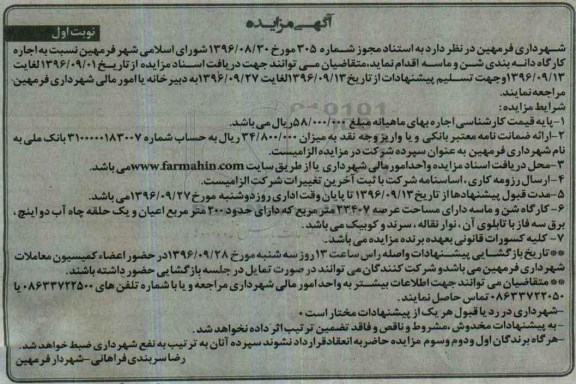 آگهی مزایده
نوبت اول
شهرداری فرمهین در نظر دارد به استناد مجوز شماره ۳۰۵ مورخ ۱۳۹۶/۰۸/۳۰ شورای اسلامی شهر فرمهین نسبت به اجاره
کارگاه دانه بندی شن و ماسه اقدام نماید، متقاضیان می توانند جهت دریافت اسناد مزایده از تاریخ ۱۳۹۶/۰۹/۰۱ لغایت
۱۳۹۶/۰۹/۱۳ وجهت تسلیم پیشنهادات از تاریخ ۱۳۹۶/۰۹/۱۳ لغایت ۱۳۹۶/۰۹/۲۷ به دبیرخانه یا امور مالی شهرداری فرمهین
مراجعه نمایند.
شرایط مزایده:
۱-پایه قیمت کارشناسی اجاره بهای ماهیانه مبلغ ۵۸/۰۰۰/۰۰۰ ریال می باشد.
۲-ارائه ضمانت نامه معتبر بانکی و یا واریز وجه نقد به میزان ۳۴/۸۰۰/۰۰۰ ریال به حساب شماره ۳۱۰۰۰۰۰۱۸۳۰۰۷ بانک ملی به
نام شهرداری فرمهین به عنوان سپرده شرکت در مزایده الزامیست.
۳-محل دریافت اسناد مزایده واحد امور مالی شهرداری یا از طریق سایت www.farmahin.com می باشد.
۴-ارسال رزومه کاری، اساسنامه شرکت با ثبت آخرین تغییرات شرکت الزامیست.
۵-مدت قبول پیشنهادها از تاریخ ۱۳۹۶/۰۹/۱۳ تا پایان وقت اداری روز دوشنبه مورخ ۱۳۹۶/۰۹/۲۷ می باشد.
۶-کارگاه شن و ماسه دارای مساحت عرصه ۲۳۴۰۷ متر مربع که دارای حدود ۲۰۰ متر مربع اعیان و یک حلقه چاه آب دو اینچ،
برق سه فاز با تابلوی آن، نوار نقاله، سرند و کوبیک می باشد.
۷- کلیه کسورات قانونی بعهده برنده مزایده می باشد.
**تاریخ بازگشایی پیشنهادات واصله راس ساعت ۱۳ روز سه شنبه مورخ ۱۳۹۶/۰۹/۲۸ در حضور اعضاء کمیسیون معاملات
شهرداری فرمهین می باشد و شرکت کنندگان می توانند در صورت تمایل در جلسه بازگشایی حضور داشته باشند.
**متقاضیان می توانند جهت اطلاعات بیشتر به واحد امور مالی شهرداری مراجعه و یا با شماره تلفن های ۰۸۶۳۳۷۲۲۵۰۰ یا
۰۸۶۳۳۷۲۲۰۵۰ تماس حاصل نمایند.
-شهرداری در رد یا قبول هر یک از پیشنهادات مختار است
-به پیشنهادات مخدوش، مشروط و ناقص و فاقد تضمین ترتیب اثر داده نخواهد شد.
-هرگاه برندگان اول و دوم و سوم مزایده حاضر به انعقاد قرارداد نشوند سپرده آنان به ترتیب به نفع شهرداری ضبط خواهد شد.
رضا سربندی فراهانی-شهردار فرمهین